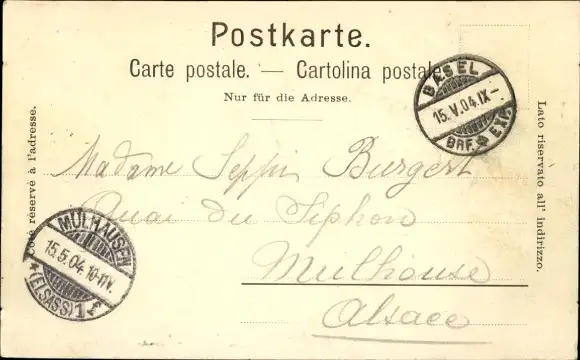 Postkarte.
Carte postale. — Cartolina postale.
Nur für die Adresse.
Côté réservé à l'adresse.
Lato riservato all' indirizzo.
BASEL
15.V.04.IX–
BRF. EXP.
Madame Seppi Burgert
Quai du Siphon
Mulhouse
Alsace
MÜLHAUSEN
15.5.04.10-11V.
*(ELSASS)1